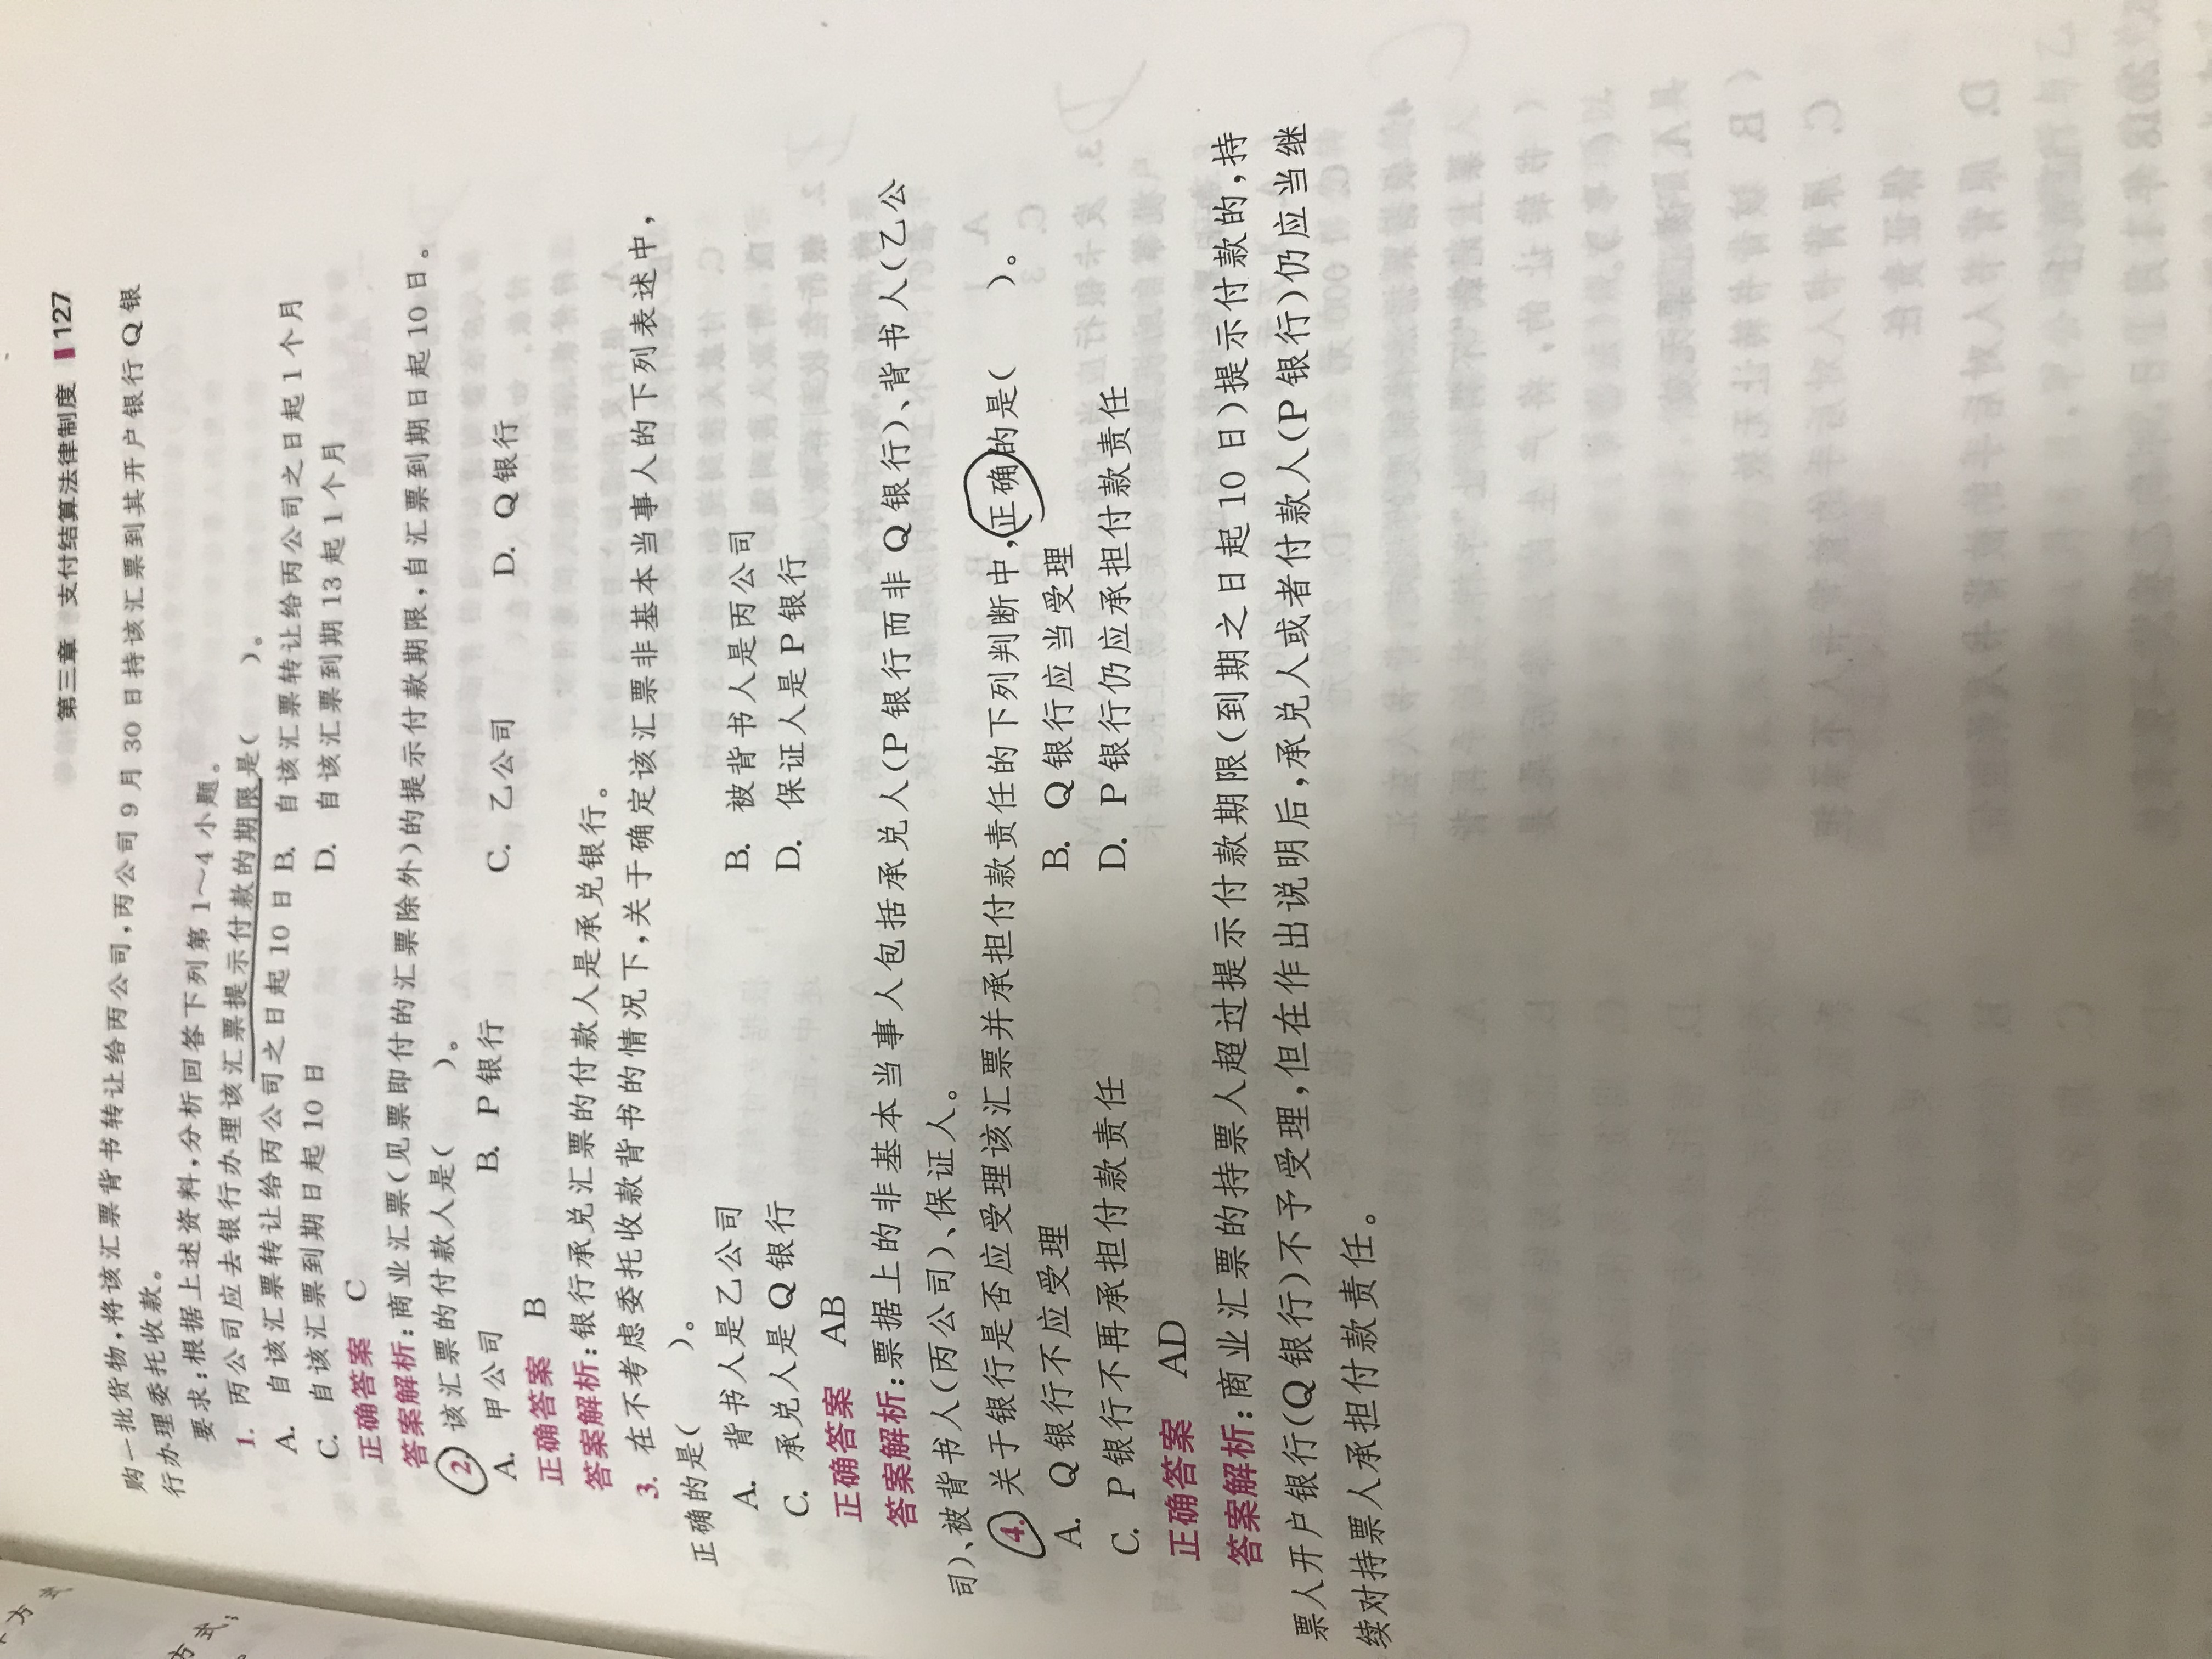 第三章 支付结算法律制度 127
购一批货物,将该汇票背书转让给丙公司,丙公司9月30日持该汇票到其开户银行Q银
行办理委托收款。
要求:根据上述资料,分析回答下列第1~4小题。
1. 丙公司应去银行办理该汇票提示付款的期限是( )。
A. 自该汇票转让给丙公司之日起10日 B. 自该汇票转让给丙公司之日起1个月
C. 自该汇票到期日起10日 D. 自该汇票到期13起1个月
正确答案 C
答案解析:商业汇票(见票即付的汇票除外)的提示付款期限,自汇票到期日起10日。
2. 该汇票的付款人是( )。
A. 甲公司 B. P银行 C. 乙公司 D. Q银行
正确答案 B
答案解析:银行承兑汇票的付款人是承兑银行。
3. 在不考虑委托收款背书的情况下,关于确定该汇票非基本当事人的下列表述中,
正确的是( )。
A. 背书人是乙公司 B. 被背书人是丙公司
C. 承兑人是Q银行 D. 保证人是P银行
正确答案 AB
答案解析:票据上的非基本当事人包括承兑人(P银行而非Q银行)、背书人(乙公
司)、被背书人(丙公司)、保证人。
4. 关于银行是否应受理该汇票并承担付款责任的下列判断中,正确的是( )。
A. Q银行不应受理 B. Q银行应当受理
C. P银行不再承担付款责任 D. P银行仍应承担付款责任
正确答案 AD
答案解析:商业汇票的持票人超过提示付款期限(到期之日起10日)提示付款的,持
票人开户银行(Q银行)不予受理,但在作出说明后,承兑人或者付款人(P银行)仍应当继
续对持票人承担付款责任。
方式
方式;